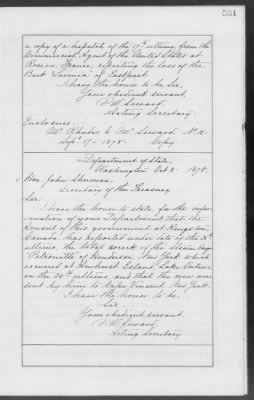 a copy of a dispatch of the 17th ultimo, from the
Commercial Agent of the United States at
Rouen, France, reporting the loss of the
Bark of Eastport.
I have the honor to be, Sir,
Your obedient servant,
F. W. Seward,
Acting Secretary.
Enclosure.
Mr. Rhodes to Mr. Seward, No. 10.
Sept. 17 - 1878. Copy
Department of State,
Washington Oct 8. 1878.
Hon. John Sherman,
Secretary of the Treasury
Sir:
I have the honor to state, for the infor-
mation of your Department, that the
Consul of this government at Kingston,
Canada, has reported under date of the
ultimo, the total wreck of the Steam barge
of Henderson, New York which
occurred at Amherst Island, Lake Ontario
on the 24th ultimo, and that the crew were
sent by him to Cape Vincent, New York.
I have the honor to be,
Sir,
Your obedient servant
F. W. Seward,
Acting Secretary